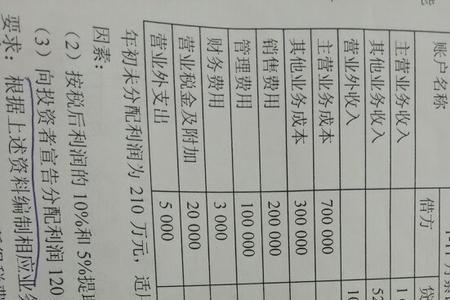 能
账户名称 借方 贷
主营业务收入
其他业务收入
营业外收入
主营业务成本 700 000
其他业务成本 300 000
销售费用 200 000
管理费用 100 000
财务费用 3 000
营业税金及附加 20 000
营业外支出 5 000
年初未分配利润为 210 万元，适
因素：
（2）按税后利润的 10%和 5%提
（3）向投资者宣告分配利润 120
要求：根据上述资料编制相应业